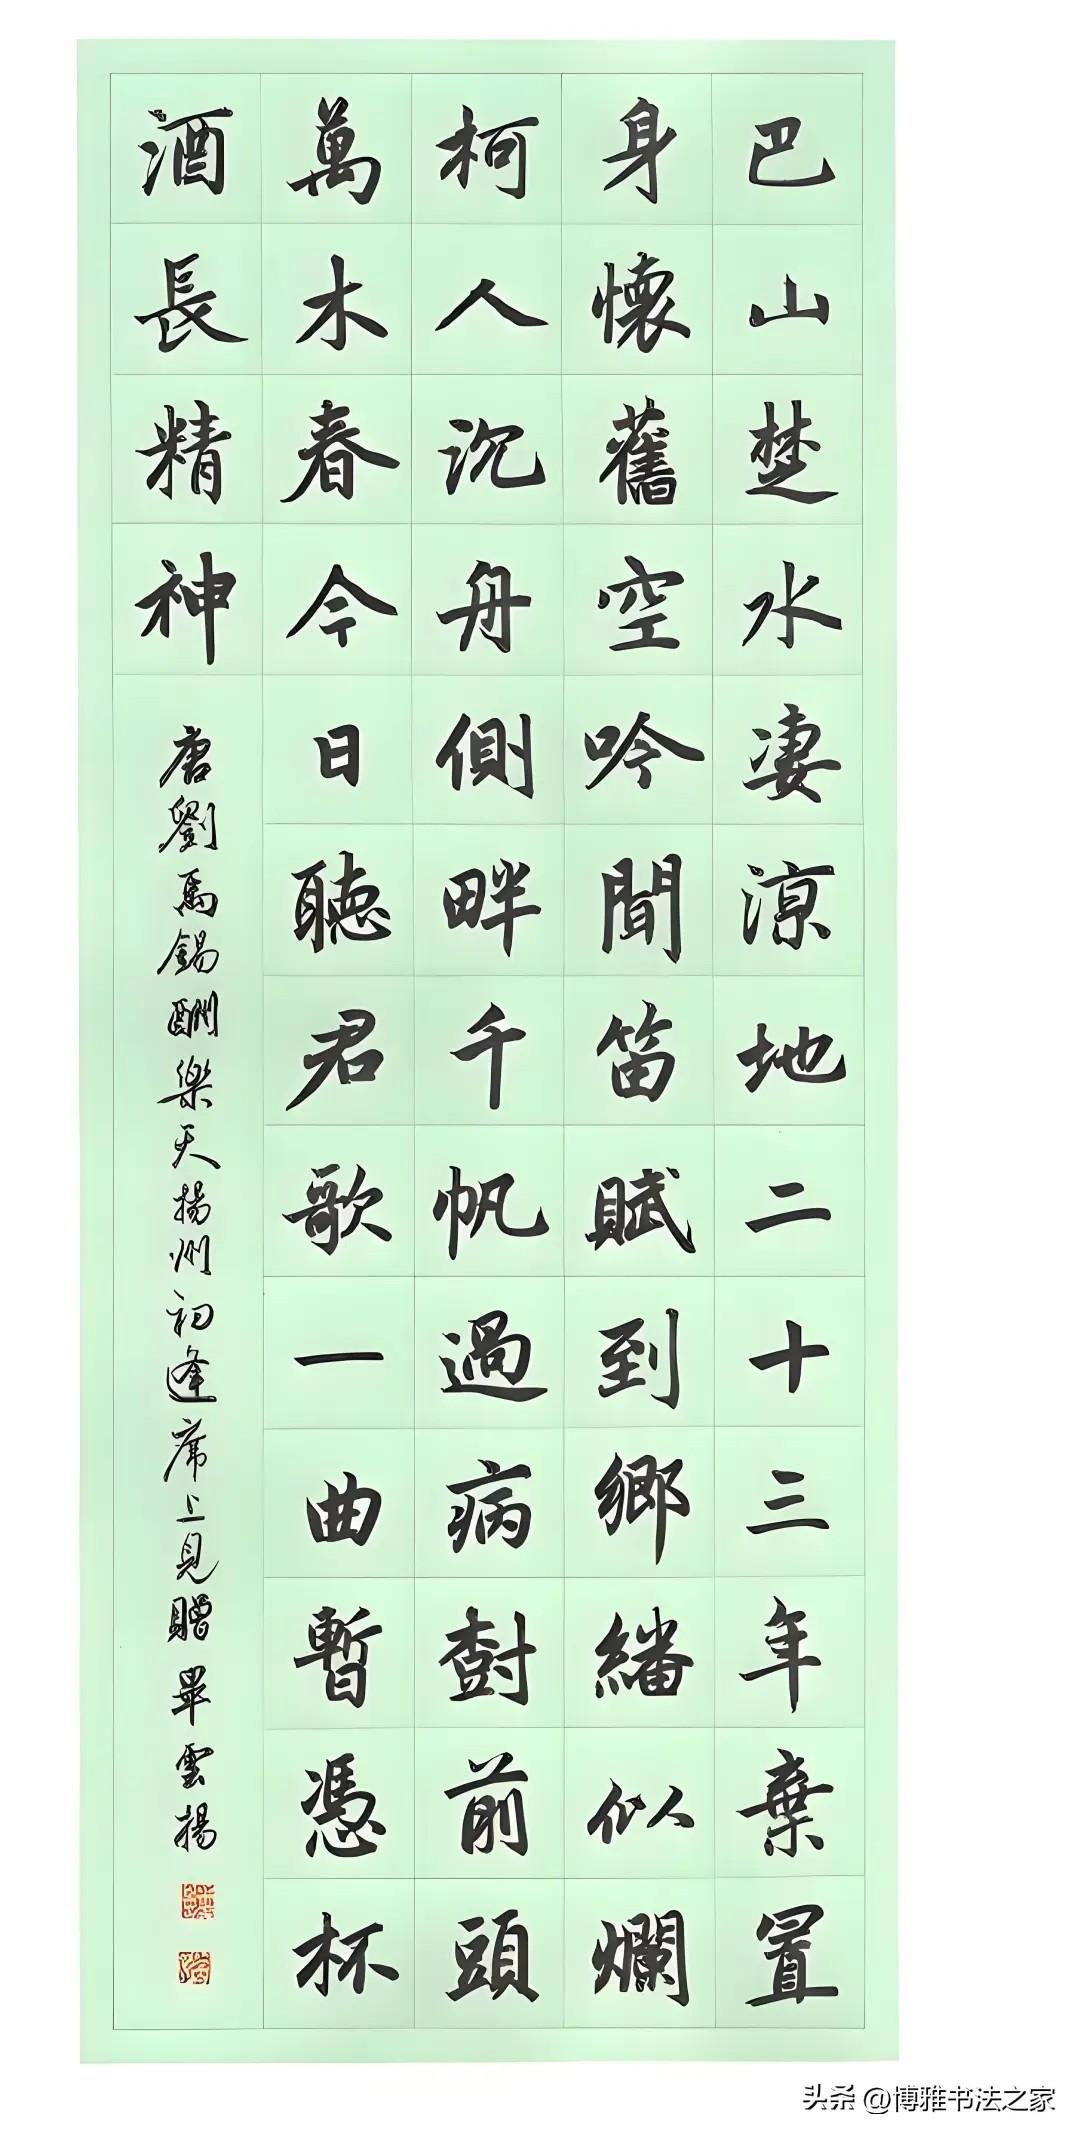 巴山楚水凄涼地二十三年棄置
身懷舊空吟聞笛賦到鄉繙似爛
柯人沉舟側畔千帆過病樹前頭
萬木春今日聽君歌一曲暫憑杯
酒長精神
唐劉禹錫酬樂天揚州初逢席上見贈畢雲揚
头条 @博雅书法之家